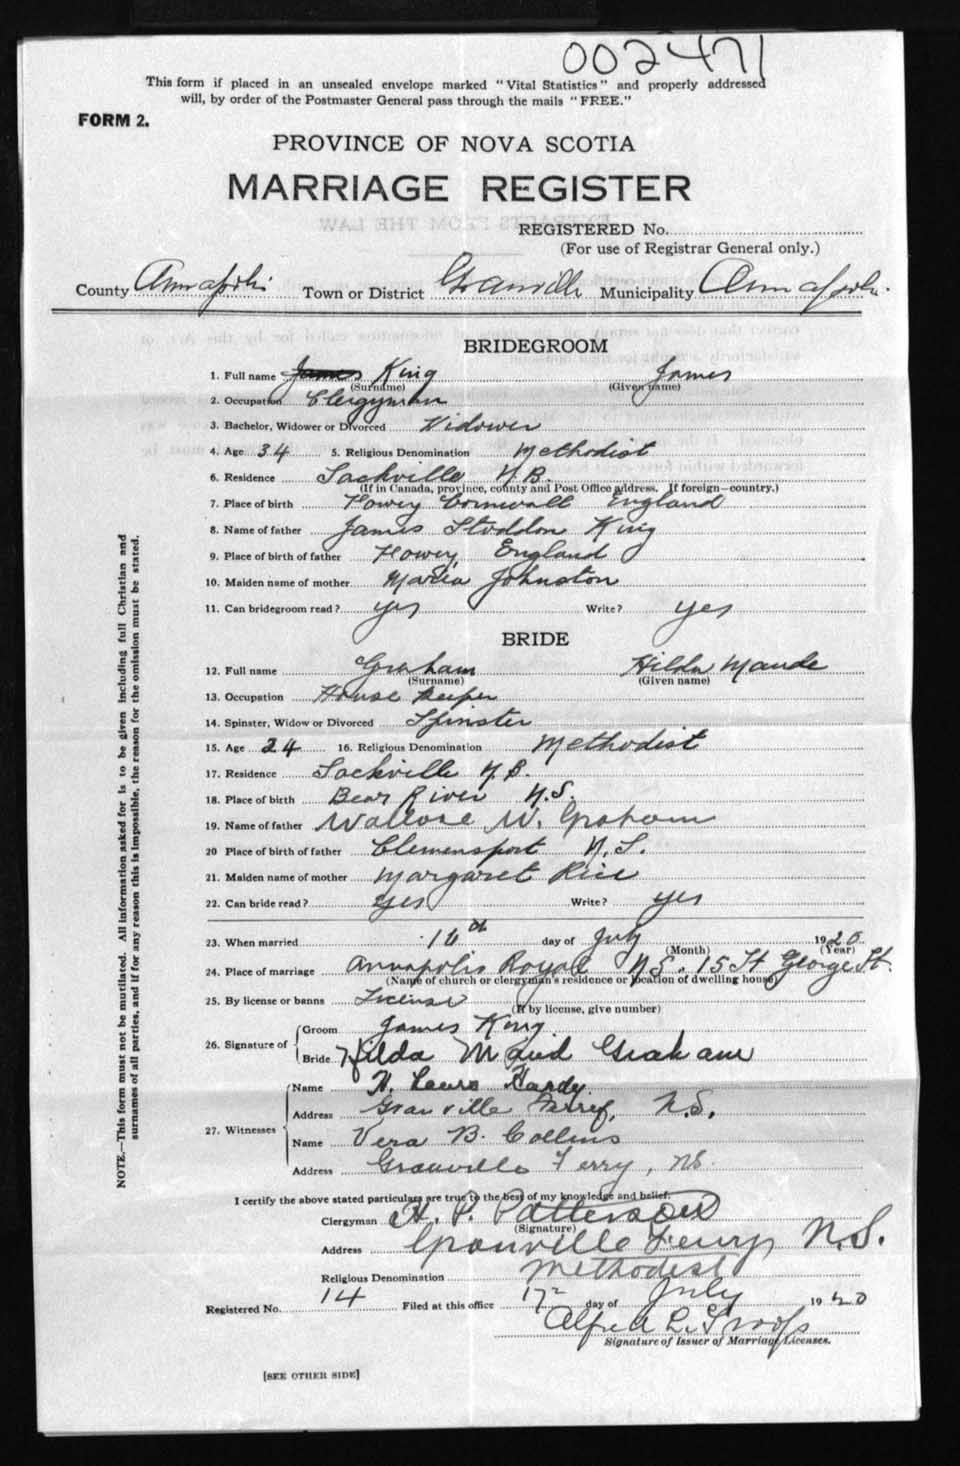 002471
This form if placed in an unsealed envelope marked "Vital Statistics" and properly addressed
will, by order of the Postmaster General pass through the mails "FREE."
FORM 2.
PROVINCE OF NOVA SCOTIA
MARRIAGE REGISTER
REGISTERED No.
(For use of Registrar General only.)
County Annapolis Town or District Granville Municipality Annapolis.
BRIDEGROOM
1. Full name James King James
(Surname) (Given name)
2. Occupation Clergyman
3. Bachelor, Widower or Divorced Widower
4. Age 34 5. Religious Denomination Methodist
6. Residence Sackville N.B.
(If in Canada, province, county and Post Office address. If foreign—country.)
7. Place of birth Fowey Cornwall England
8. Name of father James Stoddon King
9. Place of birth of father Fowey, England
10. Maiden name of mother Maria Johnston
11. Can bridegroom read? yes Write? yes
BRIDE
12. Full name Graham Hilda Maude
(Surname) (Given name)
13. Occupation House Keeper
14. Spinster, Widow or Divorced Spinster
15. Age 24 16. Religious Denomination Methodist
17. Residence Sackville N.B.
18. Place of birth Bear River N.S.
19. Name of father Wallace W. Graham
20 Place of birth of father Clemensport N.S.
21. Maiden name of mother Margaret Rice
22. Can bride read? Yes Write? yes
23. When married 16th day of July 1920
(Month) (Year)
24. Place of marriage Annapolis Royal N.S. 15 St George St.
(Name of church or clergyman's residence or location of dwelling house)
25. By license or banns License
(If by license, give number)
26. Signature of Groom James King
Bride Hilda Maud Graham
27. Witnesses Name H. Laura Hardy
Address Granville Ferry, N.S.
Name Vera B. Collins
Address Granville Ferry, NS.
I certify the above stated particulars are true to the best of my knowledge and belief.
Clergyman H. P. Patterson
(Signature)
Address Granville Ferry N.S.
Religious Denomination Methodist
Registered No. 14 Filed at this office 17 day of July 1920
Alfred
Signature of Issuer of Marriage Licenses.
[SEE OTHER SIDE]
NOTE.—This form must not be mutilated. All information asked for is to be given including full Christian and
surnames of all parties, and if for any reason this is impossible, the reason for the omission must be stated.